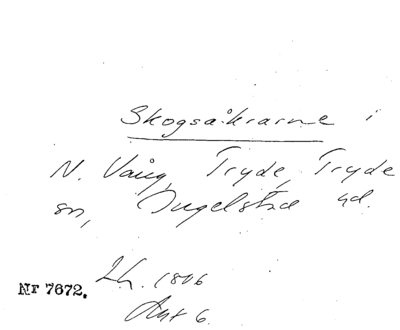 Skogsåkrarne i
N. Vång, Tryde, Tryde
sn, Ingelstad hd.
Lh. 1806
Akt 6.
Nr 7672.